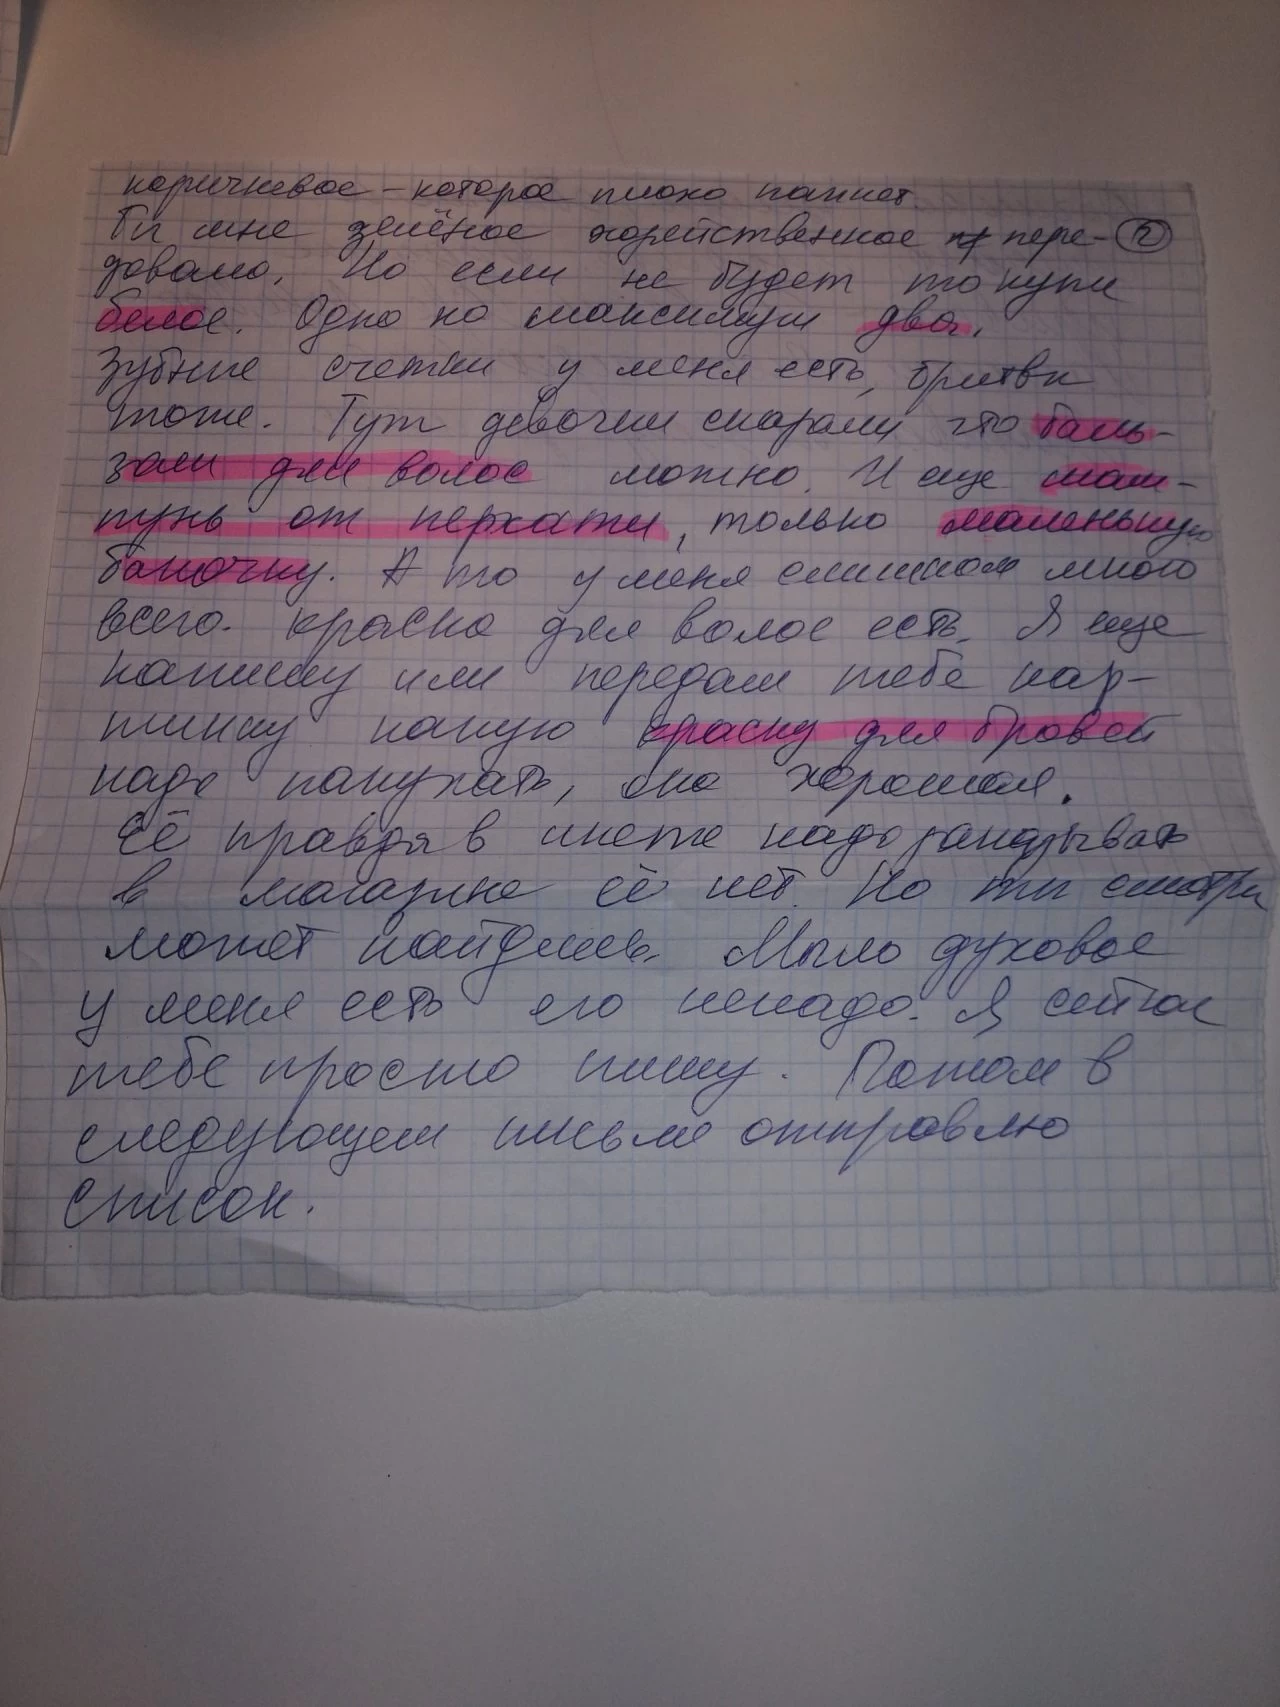 коричневое – которое плохо пахнет.
Ты мне зелёное хозяйственное пере- 2
довала. Но если не будет то купи
белое. Одно но максимум два.
Зубные счетки у меня есть, бритвы
тоже. Тут девочки сказали что баль-
зам для волос можно. И еще шам-
пунь от перхати, только маленькую
баночку. А то у меня слишком много
всего. краска для волос есть. Я еще
напишу или передам тебе кар-
тинку какую краску для бровей
надо покупать, она хорошая.
Её правда в инете надо заказывать
в магазине её нет. Но ты смотри
может найдешь. Мыло духовое
у меня есть его ненадо. Я сейчас
тебе просто пишу. Потом в
следующем письме отправлю
список.